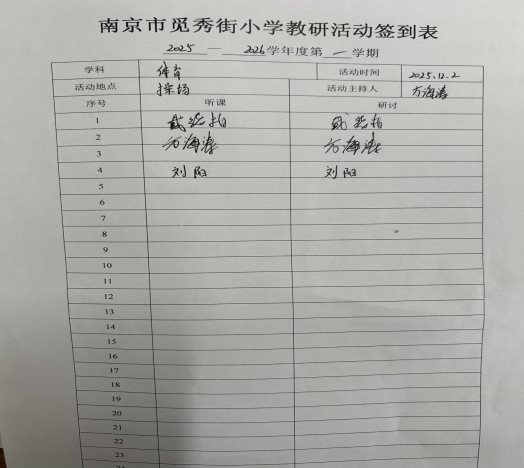 南京市觅秀街小学教研活动签到表
2025 — 2026学年度第 一 学期
学科 体育 活动时间 2025.12.2
活动地点 操场 活动主持人 万海涛
序号 听课 研讨
1
2 万海涛 万海涛
3
4 刘阳 刘阳
5
6
7
8
9
10
11
12
13
14
15
16
17
18
19
20
21
22
23